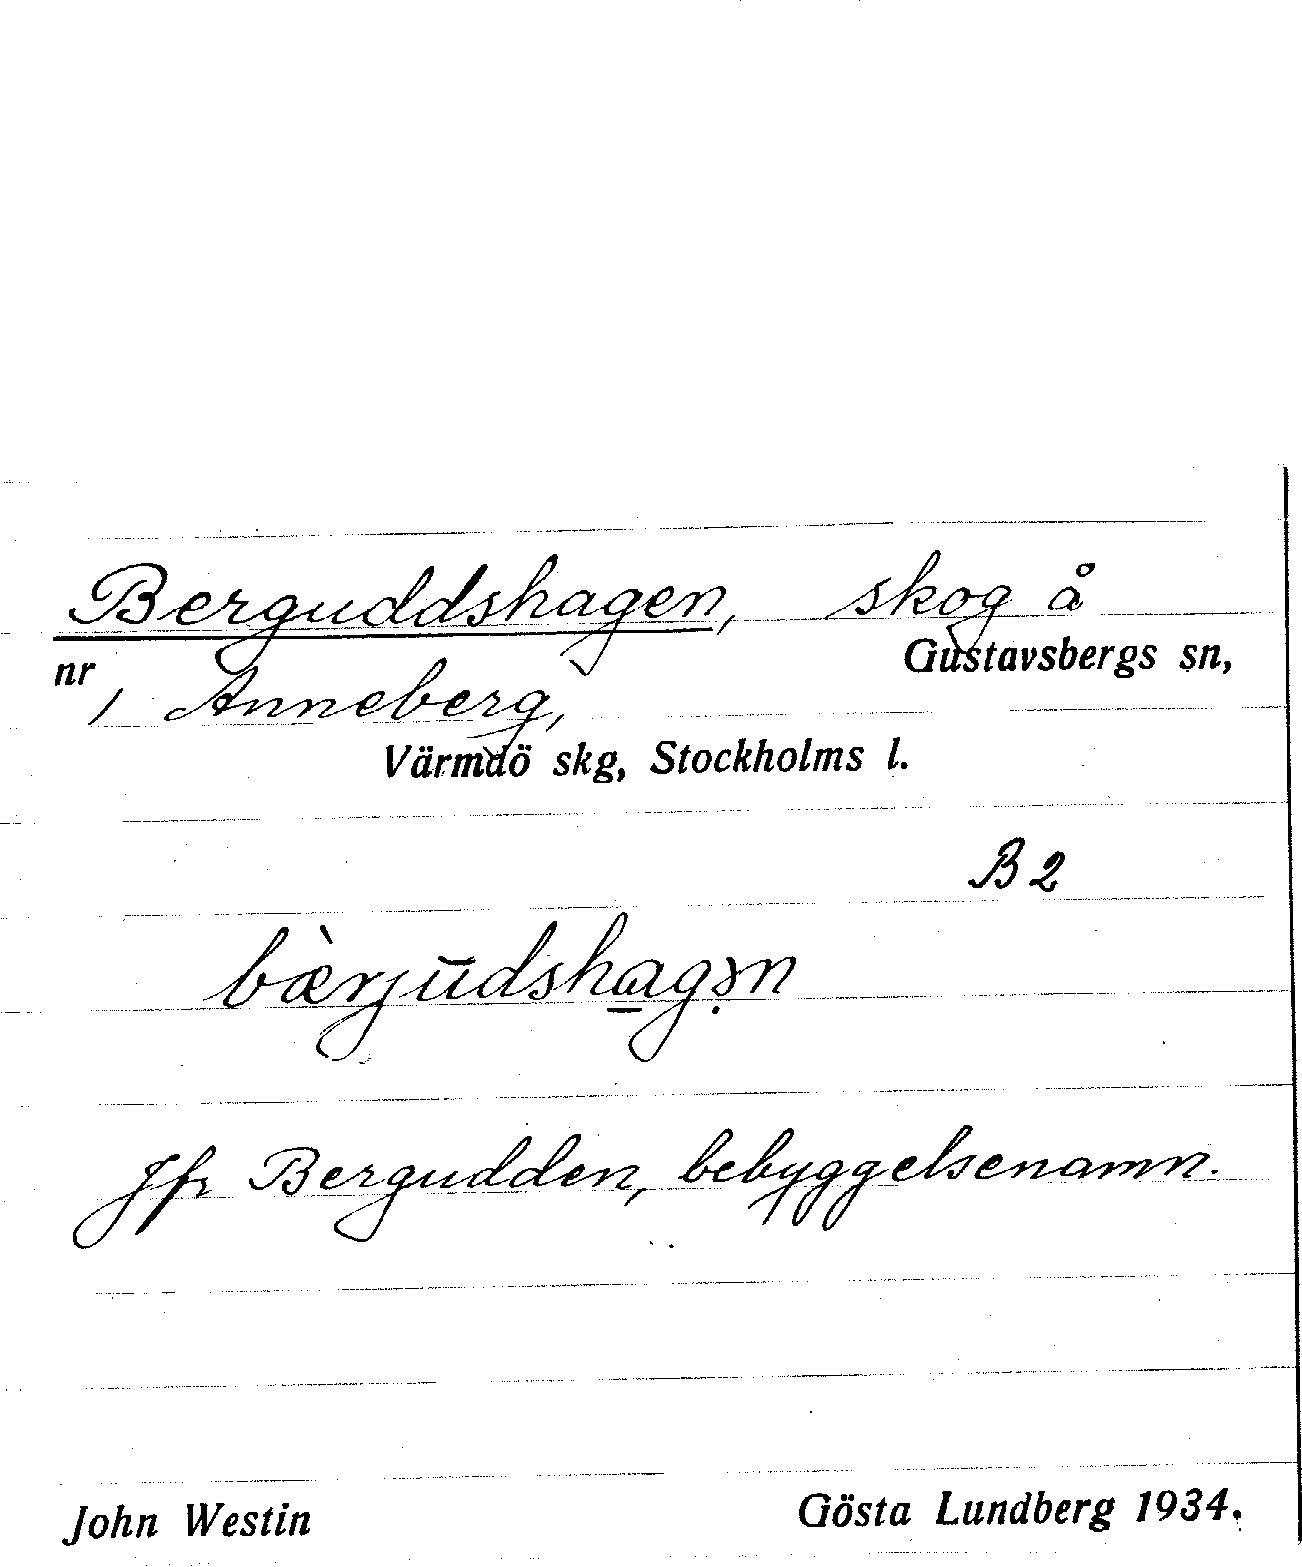 Berguddshagen, skog å
nr 1 Anneberg, Gustavsbergs sn,
Värmdö skg, Stockholms l.
B 2
bæ̀rjūdshag̲ən
Jfr Bergudden, bebyggelsenamn.
John Westin Gösta Lundberg 1934.